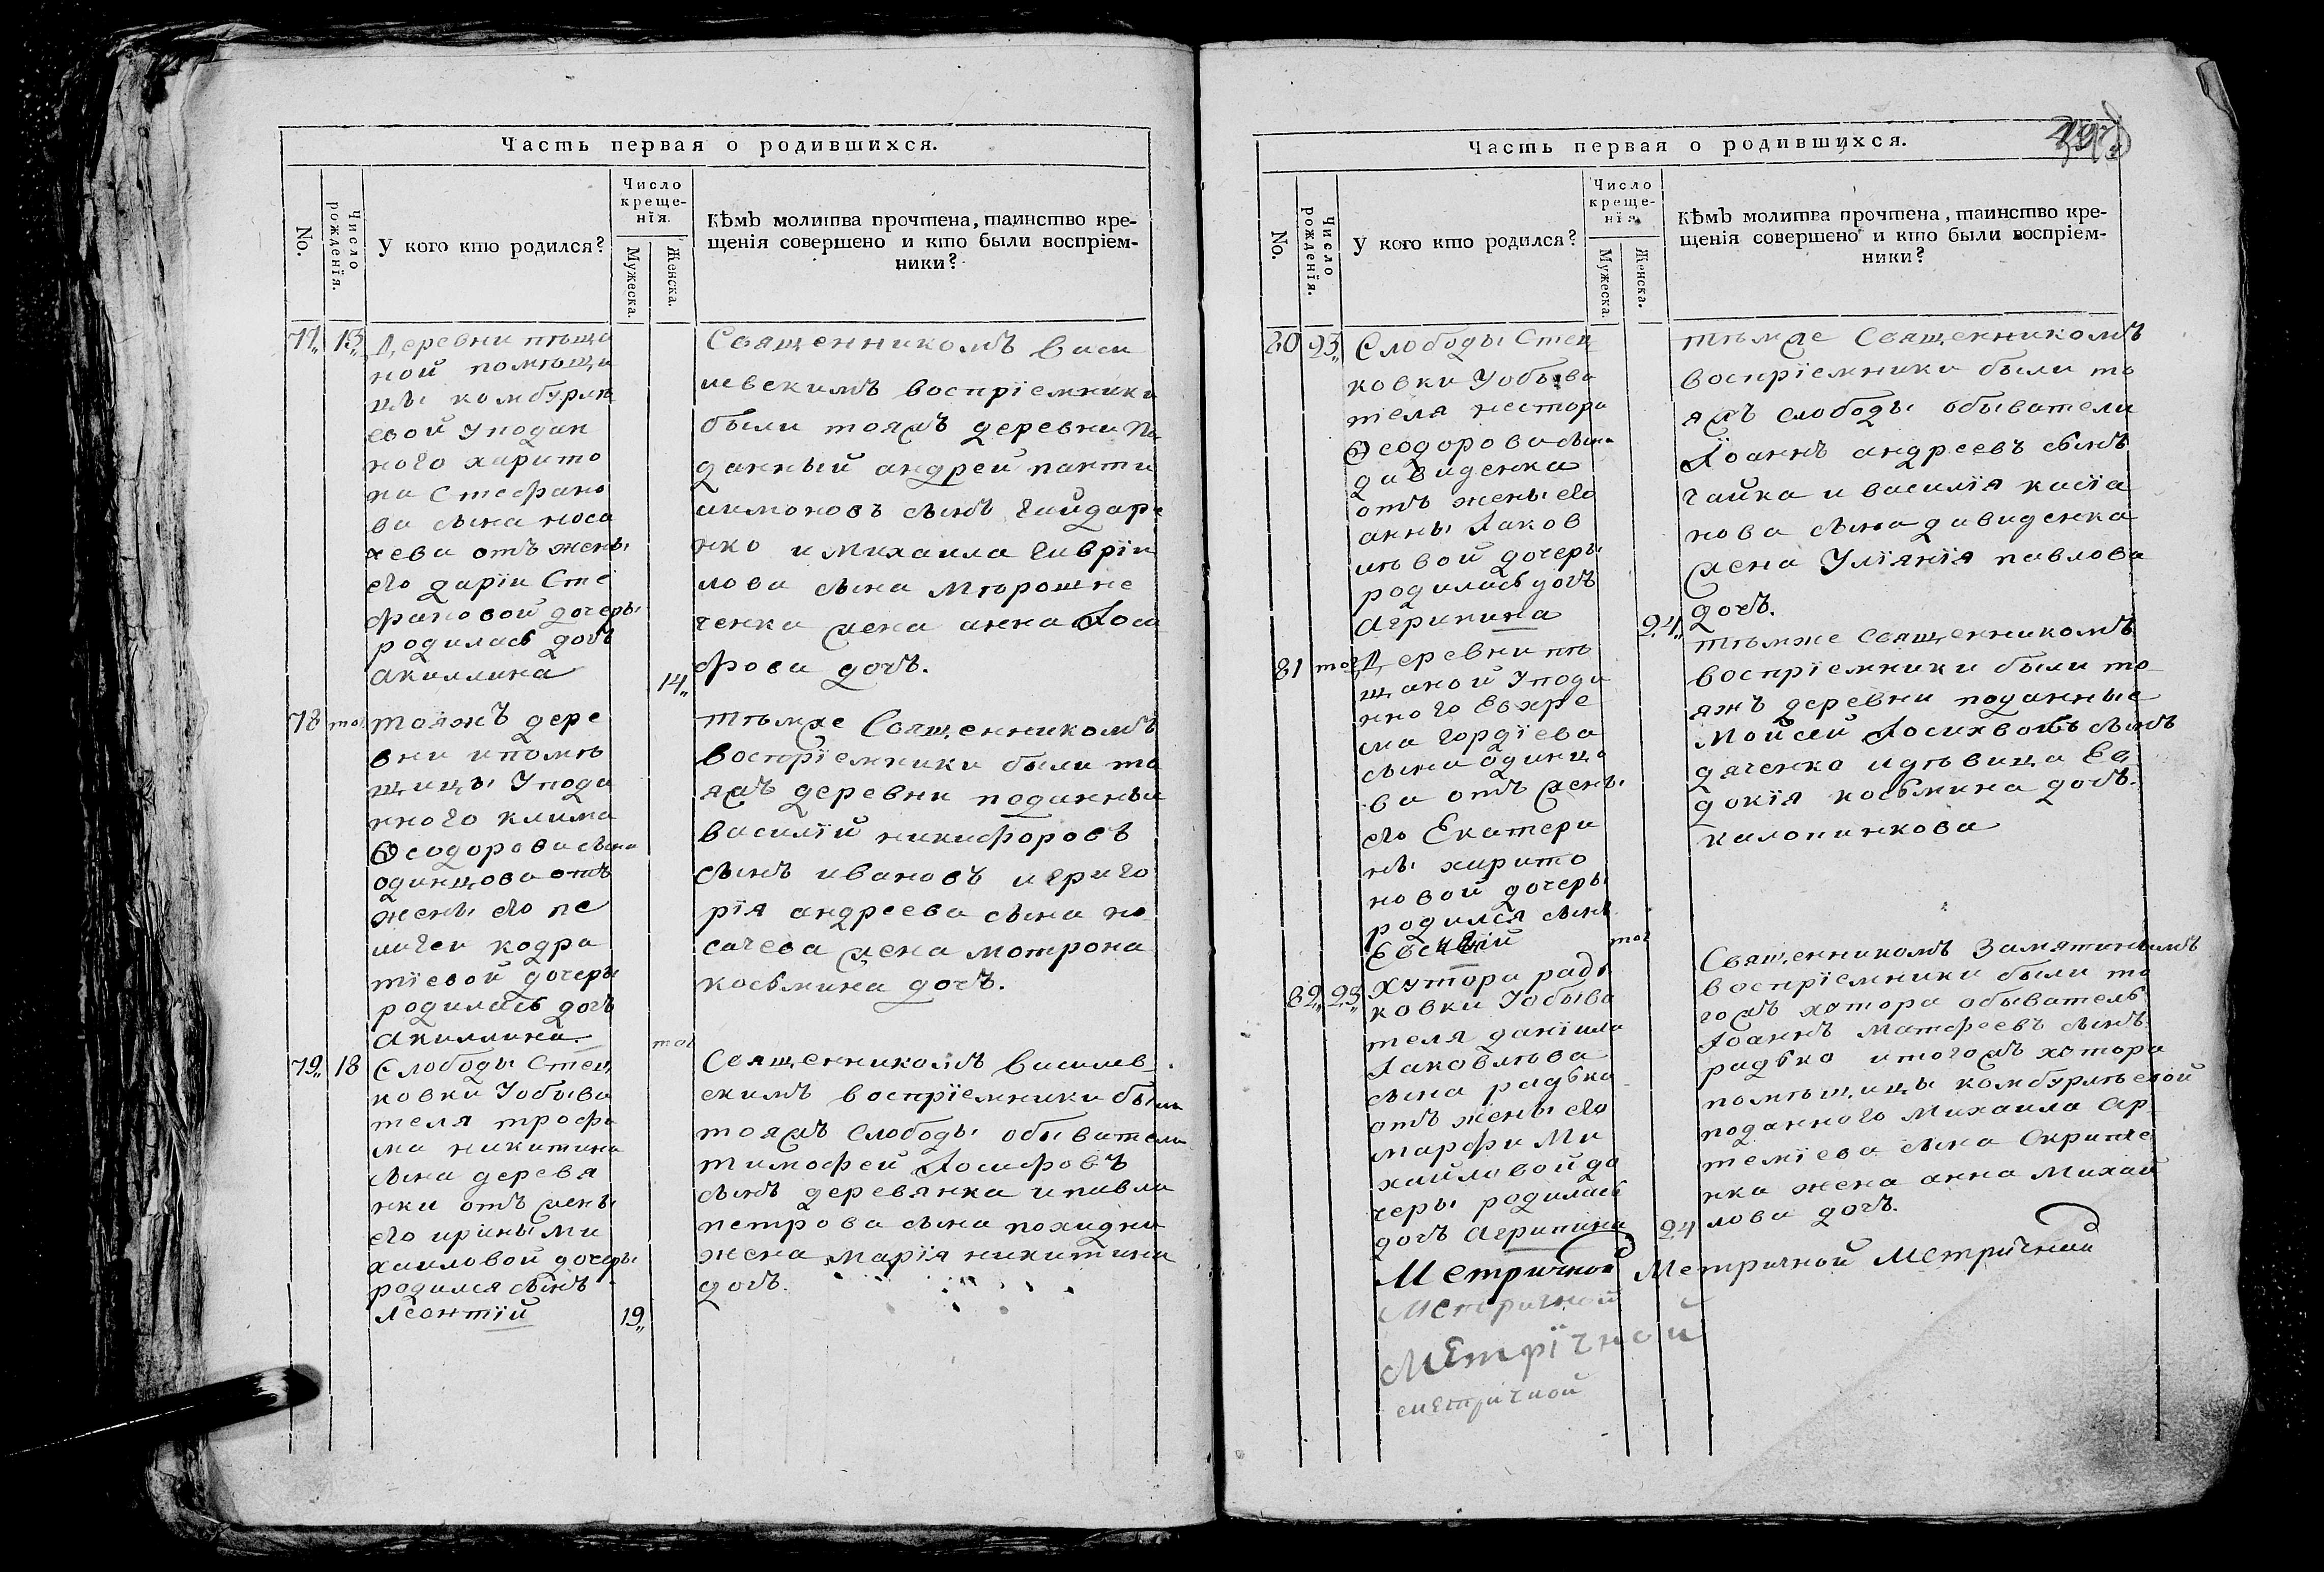 Часть первая о родившихся.
No.
Число рожденїя.
У кого кто родился?
Число
креще-
нїя.
Мужеска.
Женска.
Кѣмъ молитва прочтена, таинство кре-
щенія совершено и кто были воспріем-
ники?
77„ 13„
Деревни пѣща
ной помѣщи
цы комбурлѣ
евой у подан
ного харито
на Стефано
ва сына носа
чева отъ жены
его дарїи Сте
фановой дочеры
родилась дочъ
акиллина
14„
Священникомъ Васи
левскимъ воспрїемники
были тояжъ деревни по
данный андрей панти
лимоновъ сынъ гайдаре
нко и Михаила гаврїи
лова сына Мѣрошне
ченка жена анна Іоси
фова дочъ.
78 тог
тояжъ дере
вни и помѣ
щицы у пода
нного клима
Ѳеодорова сына
одинцова отъ
жены его пе
лагеи кодра
тїевой дочеры
родилась дочъ
акиллина
тог
тѣмже Священникомъ
воспрїемники были то
яжъ деревни поданныи
василїй никифоровъ
сынъ ивановъ и григо
рїя андреева сына но
сачева жена мотрона
косьмина дочъ.
79„ 18
Слободы Стец
ковки У обыва
теля трофи
ма никитина
сына деревя
нки отъ жены
его ирины ми
хаиловой дочеры
родился сынъ
Леонтїй
19„
Священникомъ Василев
скимъ воспрїемники были
тояжъ слободы обыватели
тимофей Іосифовъ
сынъ деревянка и павла
петрова сына походни
жена марїя никитина
дочъ.
Часть первая о родившихся.
No.
Число рожденїя.
У кого кто родился?
Число
креще-
нїя.
Мужеска.
Женска.
Кѣмъ молитва прочтена, таинство кре-
щенія совершено и кто были воспріем-
ники?
80 23„
Слободы Стец
ковки У обыва
теля нестора
Ѳеодорова сына
давиденка
отъ жены его
анны Іаков
лѣвой дочеры
родилась дочъ
Агрипина
24„
тѣмже Священникомъ
воспрїемники были то
яжъ слободы обыватели
Їоаннъ андреевъ сынъ
чайка и василїя касїа
нова сына давиденка
жена Улїянїя павлова
дочъ.
81 тог
Деревни пѣ
щаной У пода
нного Евхре
ма гордїева
сына одинцо
ва отъ жены
его Екатери
ны харито
новой дочеры
родился сынъ
тог
тѣмже Священникомъ
воспрїемники были то
яжъ деревни поданные
Мойсей сынъ
дяченко и дѣвица Ев
докїя косьмина дочъ.
калопинкова
82„ 23„
Хутора радь
ковки У обыва
теля данїила
Іаковлѣва
сына радька
отъ жены его
марфи Ми
хайловой до
черы родилась
дочъ Агрипина
24
Священникомъ Замятинымъ
воспрїемники были то
гожъ хутора обыватель
Іоаннъ Матфеевъ сынъ
радько и тогожъ хутора
помѣщицы комбурлѣевой
поданного Михаила Ар
темїева сына Скрипче
нка жена анна Михай
лова дочъ.
Метричной Метричной Метричний
Метричной
Метрїчной
метричной